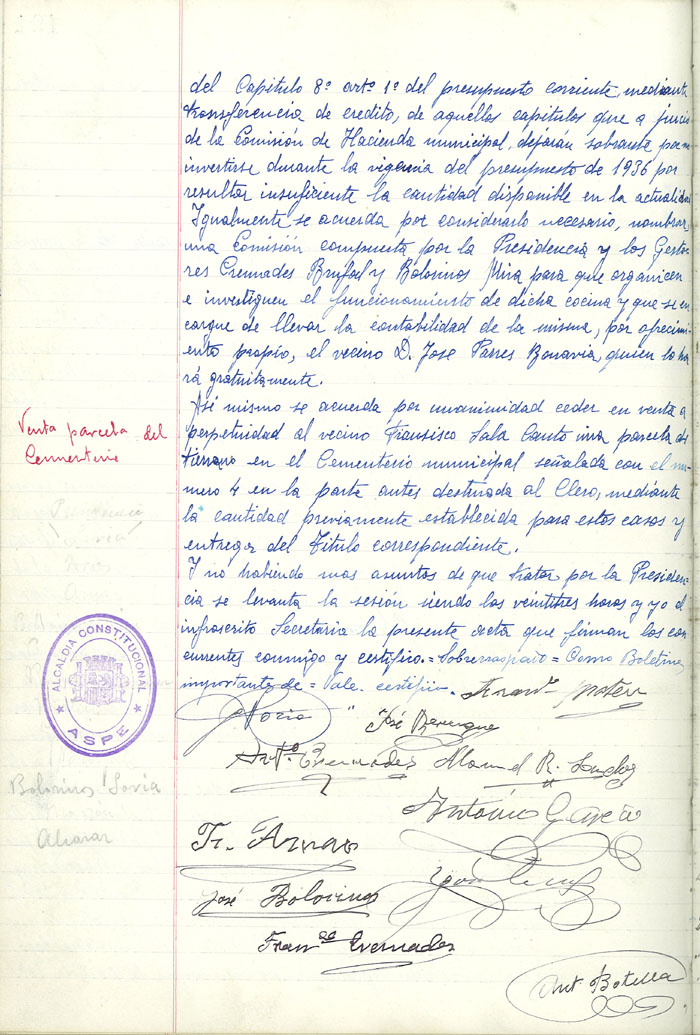 del Capitulo 8º artº 1º del presupuesto corriente, mediante
transferencia de credito, de aquellos capitulos que a juicio
de la Comisión de Hacienda municipal, dejarán sobrante para
invertirse durante la vigencia del presupuesto de 1936 por
resultar insuficiente la cantidad disponible en la actualidad
Igualmente se acuerda por considerarlo necesario, nombrar
una Comisión compuesta por la Presidencia y los Gesto-
res Cremades Brufal y Bolorinos Mira para que organicen
e investiguen el funcionamiento de dicha cocina y que se en
cargue de llevar la contabilidad de la misma, por ofrecimi-
ento propio, el vecino D. Jose Parres Bonavia, quien lo ha
rá gratuitamente.
Venta parcela del
Cementerio
Asi mismo se acuerda por unanimidad ceder en venta a
perpetuidad al vecino Francisco Sala Cantó una parcela de
terreno en el Cementerio municipal señalada con el nu-
mero 4 en la parte antes destinada al Clero, mediante
la cantidad previamente establecida para estos casos y
entrega del Titulo correspondiente.
Y no habiendo mas asuntos de que tratar por la Presiden-
cia se levanta la sesión siendo las veintitres horas y yo el
infrascrito Secretario la presente acta que firman los con
currentes conmigo y certifico. = Sobrerraspado = Como Boletines
importantes de = Vale. certifico.
ALCALDIA CONSTITUCIONAL
ASPE
José Berenguer
Antº Cremades Manuel R. Sanchez
Antonio Garcia
Fr. Aznar
José Bolorinos
Franco Cremades
Ant Botella
Bolorinos Soria
Alcaraz